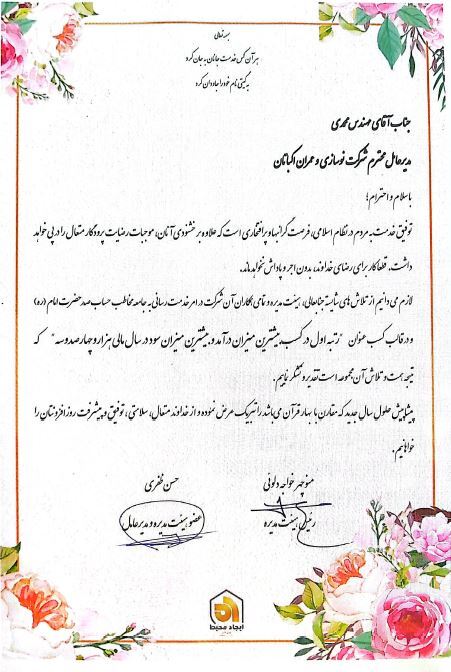 بسمه تعالی
هر آن کس خدمت جانان به جان کرد
به گیتی نام خود را جاودان کرد
جناب آقای مهندس محمدی
مدیرعامل محترم شرکت نوسازی و عمران اکباتان
با سلام و احترام؛
توفیق خدمت به مردم در نظام اسلامی، فرصت گرانبها و پرافتخاری است که علاوه بر خشنودی آنان، موجبات رضایت پروردگار متعال را در پی خواهد
داشت. قطعا کار برای رضای خداوند، بدون اجر و پاداش نخواهد ماند.
لازم می دانیم از تلاش های شایسته جنابعالی، هیئت مدیره و تمامی همکاران آن شرکت در امر خدمت رسانی به جامعه مخاطب حساب صد حضرت امام (ره)
و در قالب کسب عنوان "رتبه اول در کسب بیشترین میزان درآمد و بیشترین میزان سود در سال مالی هزار و چهارصد و سه" که
نتیجه همت و تلاش آن مجموعه است تقدیر و تشکر نماییم.
پیشاپیش حلول سال جدید که مقارن با بهار قرآن می باشد را تبریک عرض نموده و از خداوند متعال، سلامتی، توفیق و پیشرفت روز افزونتان را
خواهانیم.
منوچهر خواجه دلوئی
رئیس هیئت مدیره
حسن ظفری
عضو هیئت مدیره و مدیرعامل
ایجاد محیط